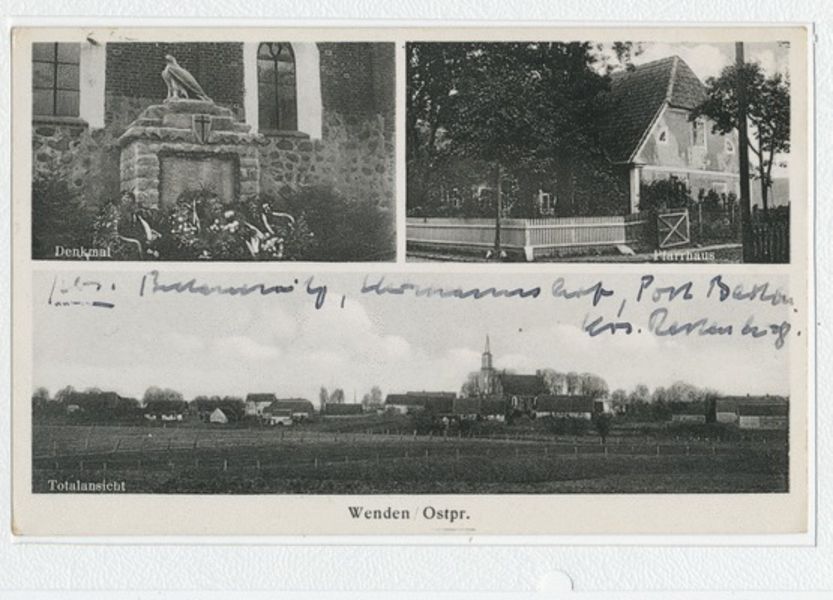 Denkmal
Pfarrhaus
Hermannshof, Post Barten
Krs. Rastenburg.
Totalansicht
Wenden/Ostpr.